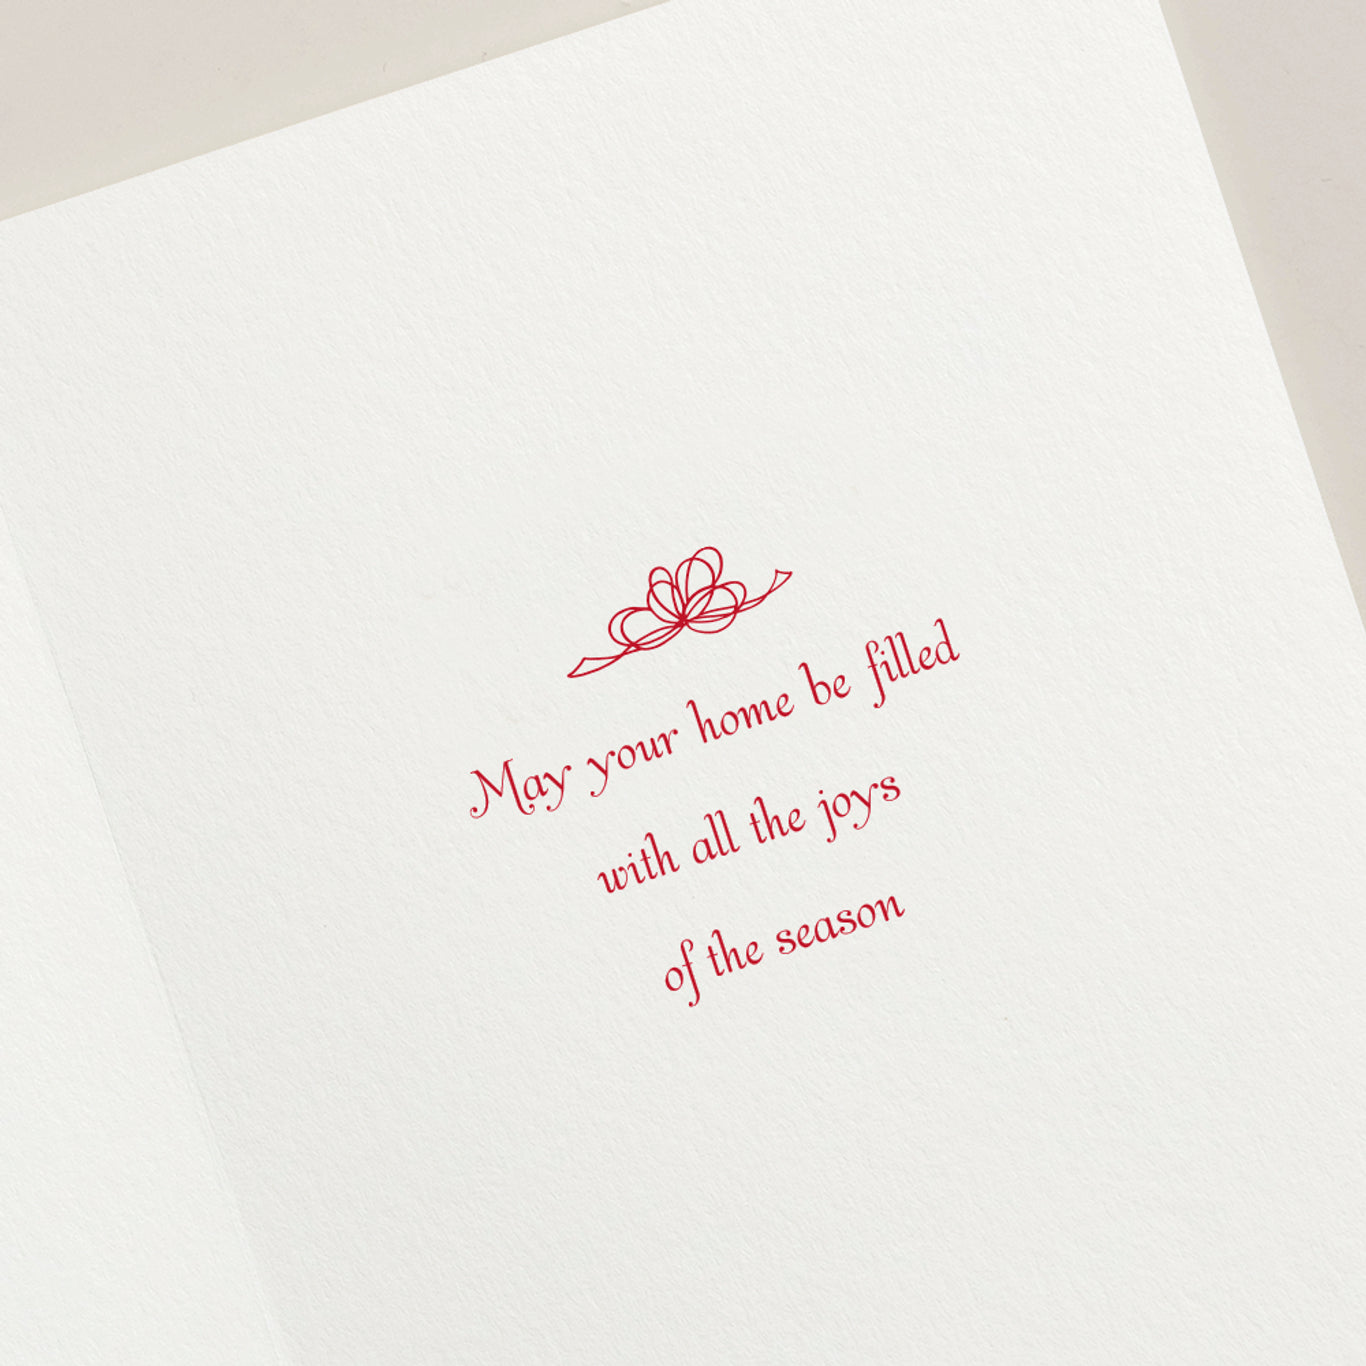 May your home be filled
with all the joys
of the season